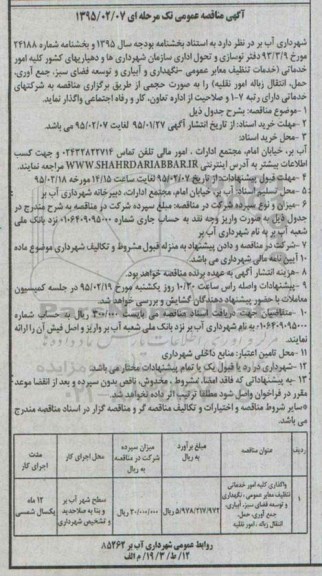 آگهی مناقصه عمومی تک مرحله ای ۱۳۹۵/۰۲/۰۷
شهرداری آب بر در نظر دارد به استناد بخشنامه بودجه سال ۱۳۹۵ و بخشنامه شماره ۲۴۱۸۸
مورخ ۹۳/۳/۹ دفتر نوسازی و تحول اداری سازمان شهرداری ها و دهیاریهای کشور کلیه امور
خدماتی (خدمات تنظیف معابر عمومی -نگهداری و آبیاری و توسعه فضای سبز، جمع آوری،
حمل، انتقال زباله امور نقلیه) را به صورت حجمی از طریق برگزاری مناقصه به شرکتهای
خدماتی دارای رتبه ۷-۱ و صلاحیت از اداره تعاون، کار و رفاه اجتماعی واگذار نماید.
۱ -موضوع مناقصه: بشرح جدول ذیل
۲ -مهلت خرید اسناد: از تاریخ انتشار آگهی ۹۵/۰۱/۲۷ لغایت ۹۵/۰۲/۰۷ می باشد
۳ -محل خرید اسناد:
آب بر، خیابان امام، مجتمع ادارات ، امور مالی تلفن تماس ۰۲۴۳۲۸۲۲۷۱۴ و جهت کسب
اطلاعات بیشتر به آدرس اینترنتی WWW.SHAHRDARIABBAR.IR مراجعه نمایند.
۴ -مهلت قبول پیشنهادات: از تاریخ ۹۵/۰۲/۰۷ لغایت ساعت ۱۴/۱۵ مورخه ۹۵/۰۲/۱۸
۵ -محل تحویل اسناد: آب بر، خیابان امام، مجتمع ادارات، دبیرخانه شهرداری آب بر
۶ -میزان و نوع سپرده شرکت در مناقصه: مبلغ سپرده شرکت در مناقصه به شرح مندرج در
جدول ذیل به صورت واریز وجه نقد به حساب جاری شماره ۰۱۰۶۴۰۹۰۹۵۰۰۰ نزد بانک ملی
شعبه آب بر به نام شهرداری آب بر
۷ -شرکت در مناقصه و دادن پیشنهاد به منزله قبول مشروط و تکالیف شهرداری موضوع ماده
۱۰ آیین نامه مالی شهرداری می باشد.
۸ -هزینه انتشار آگهی به عهده برنده مناقصه خواهد بود.
۹ -پیشنهادات واصله راس ساعت ۱۰/۳۰ روز یکشنبه مورخ ۹۵/۰۲/۱۹ در جلسه کمیسیون
معاملات با حضور پیشنهاد دهندگان گشایش و بررسی خواهد شد.
۱۰ -متقاضیان جهت دریافت اسناد مناقصه می بایست ۳۰۰/۰۰۰ ریال به حساب شماره
۰۱۰۶۴۰۹۰۹۵۰۰۰ به نام شهرداری آب بر نزد بانک ملی شعبه آب بر واریز و اصل فیش آن را ارائه
نمایند.
۱۱ -محل تامین اعتبار: منابع داخلی شهرداری
۱۲ -شهرداری در رد یا قبول یک یا تمام پیشنهادات مختار می باشد.
۱۳ -به پیشنهاداتی که فاقد امضا، مشروط، مخدوش، ناقص بدون سپرده و بعد از انقضا موعد
مقرر در فراخوان واصل شود مطلقا ترتیب اثر داده نخواهد شد.
*سایر شروط مناقصه و اختیارات و تکالیف مناقصه گر و مناقصه گزار در اسناد مناقصه مندرج
می باشد.
ردیف عنوان مناقصه مبلغ برآورد به ریال میزان سپرده شرکت در مناقصه به ریال محل اجرای کار مدت اجرای کار
۱ واگذاری کلیه امور خدماتی تنظیف معابر عمومی ، نگهداری و توسعه فضای سبز، آبیاری، جمع آوری، حمل، انتقال زباله ، امور نقلیه ۵/۹۷۸/۲۱۷/۹۷۲ ریال ۳۰۰/۰۰۰/۰۰۰ ریال سطح شهر آب بر و بنا به صلاحدید و تشخیص شهرداری ۱۲ ماه یکسال شمسی
روابط عمومی شهرداری آب بر ۸۵۲۶۲
۱۲/ط/۳/۱۹ م الف